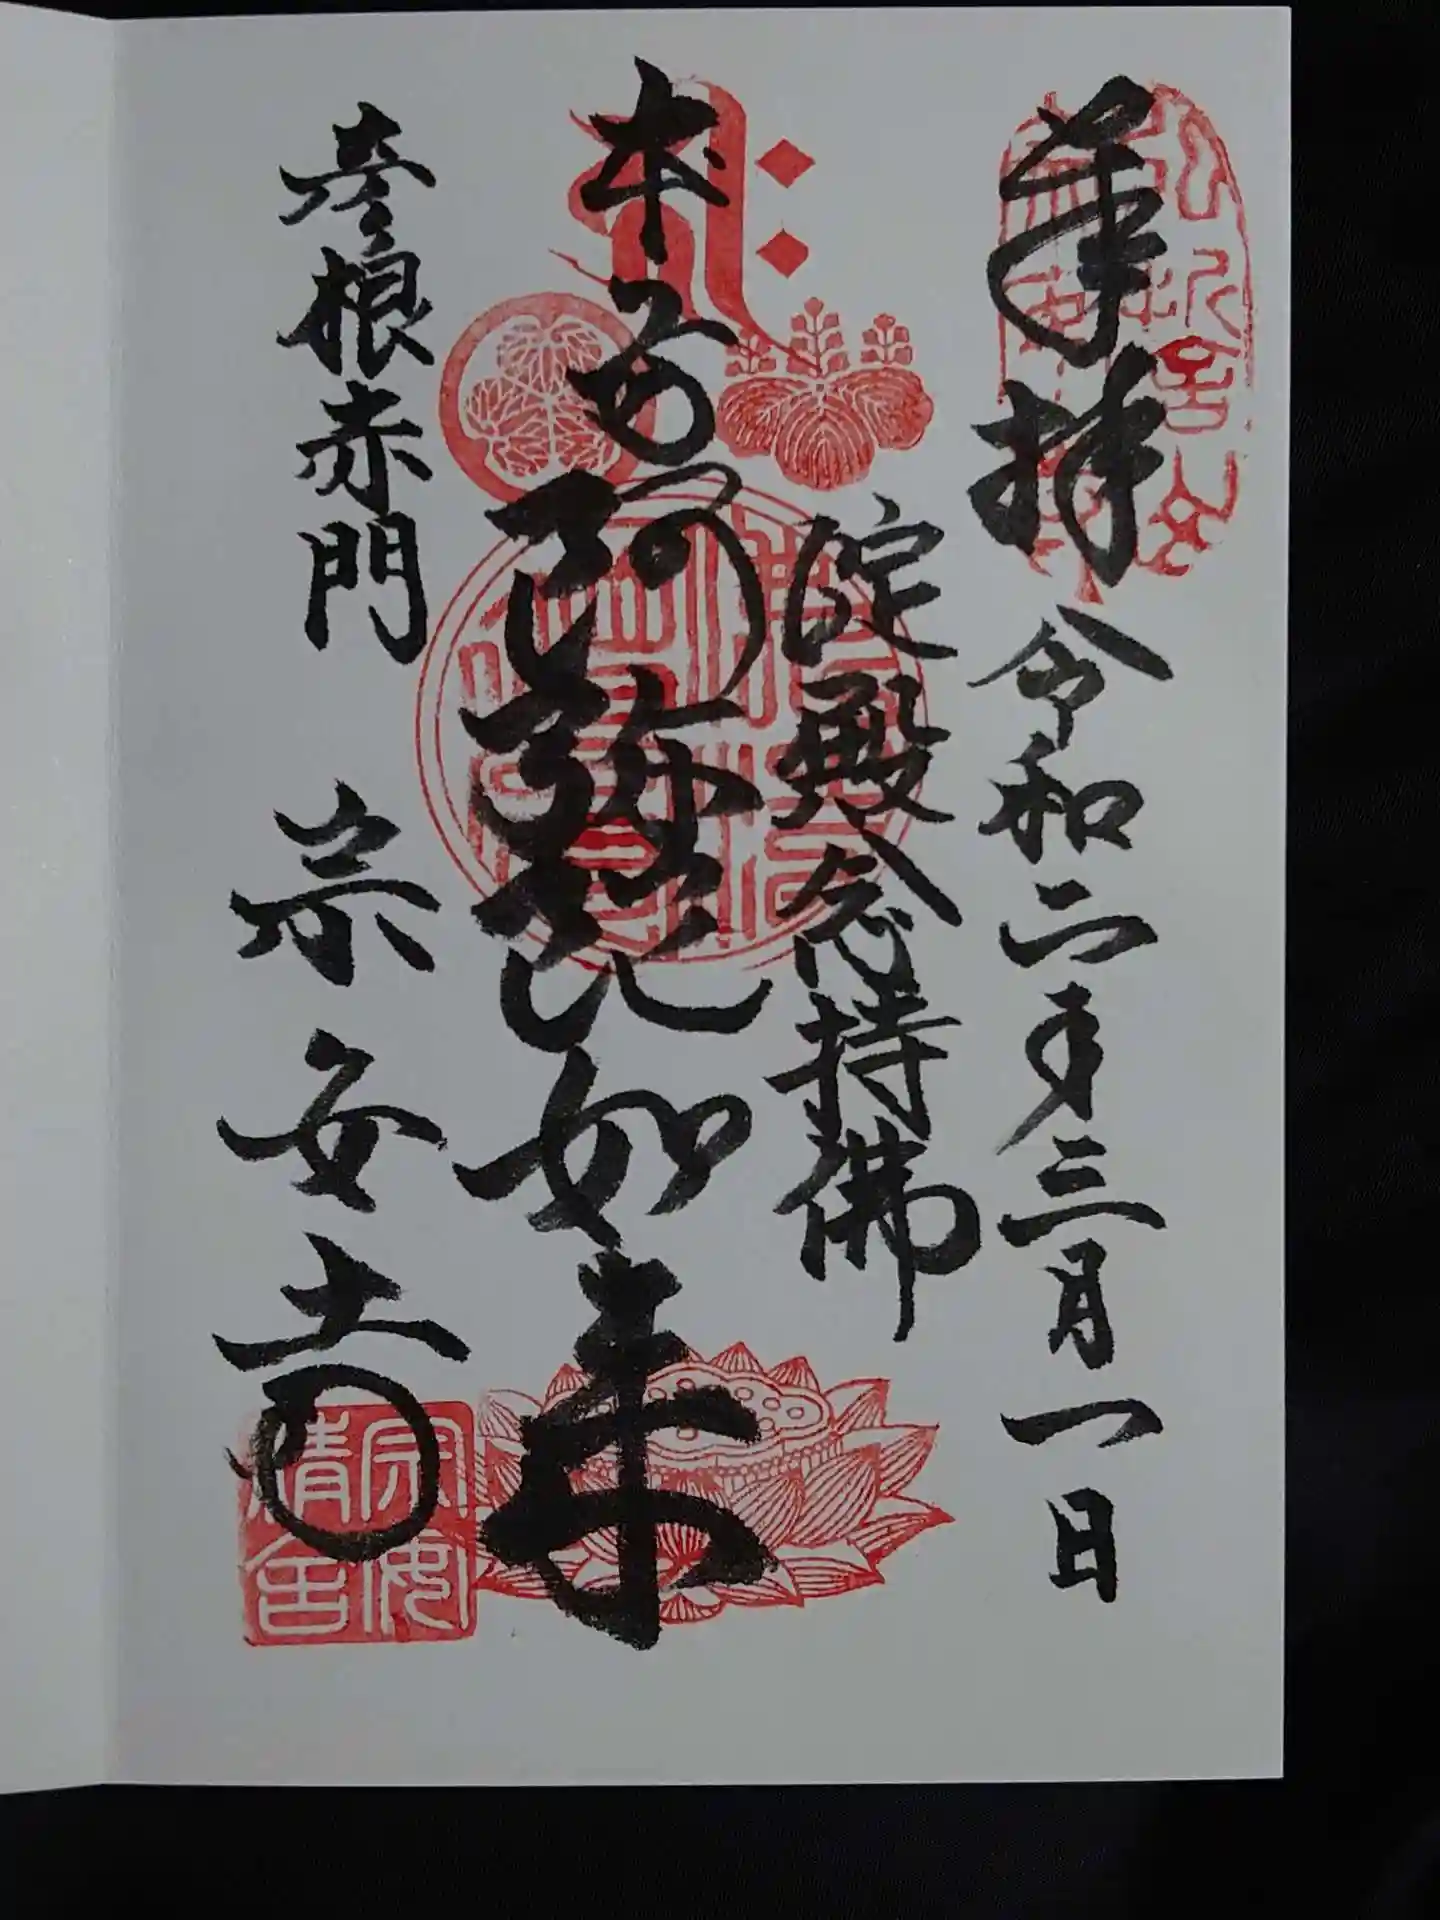 奉拝 令和二年三月一日
淀殿念持佛
本尊 阿弥陀如来
彦根赤門 宗安寺
宗安精舎